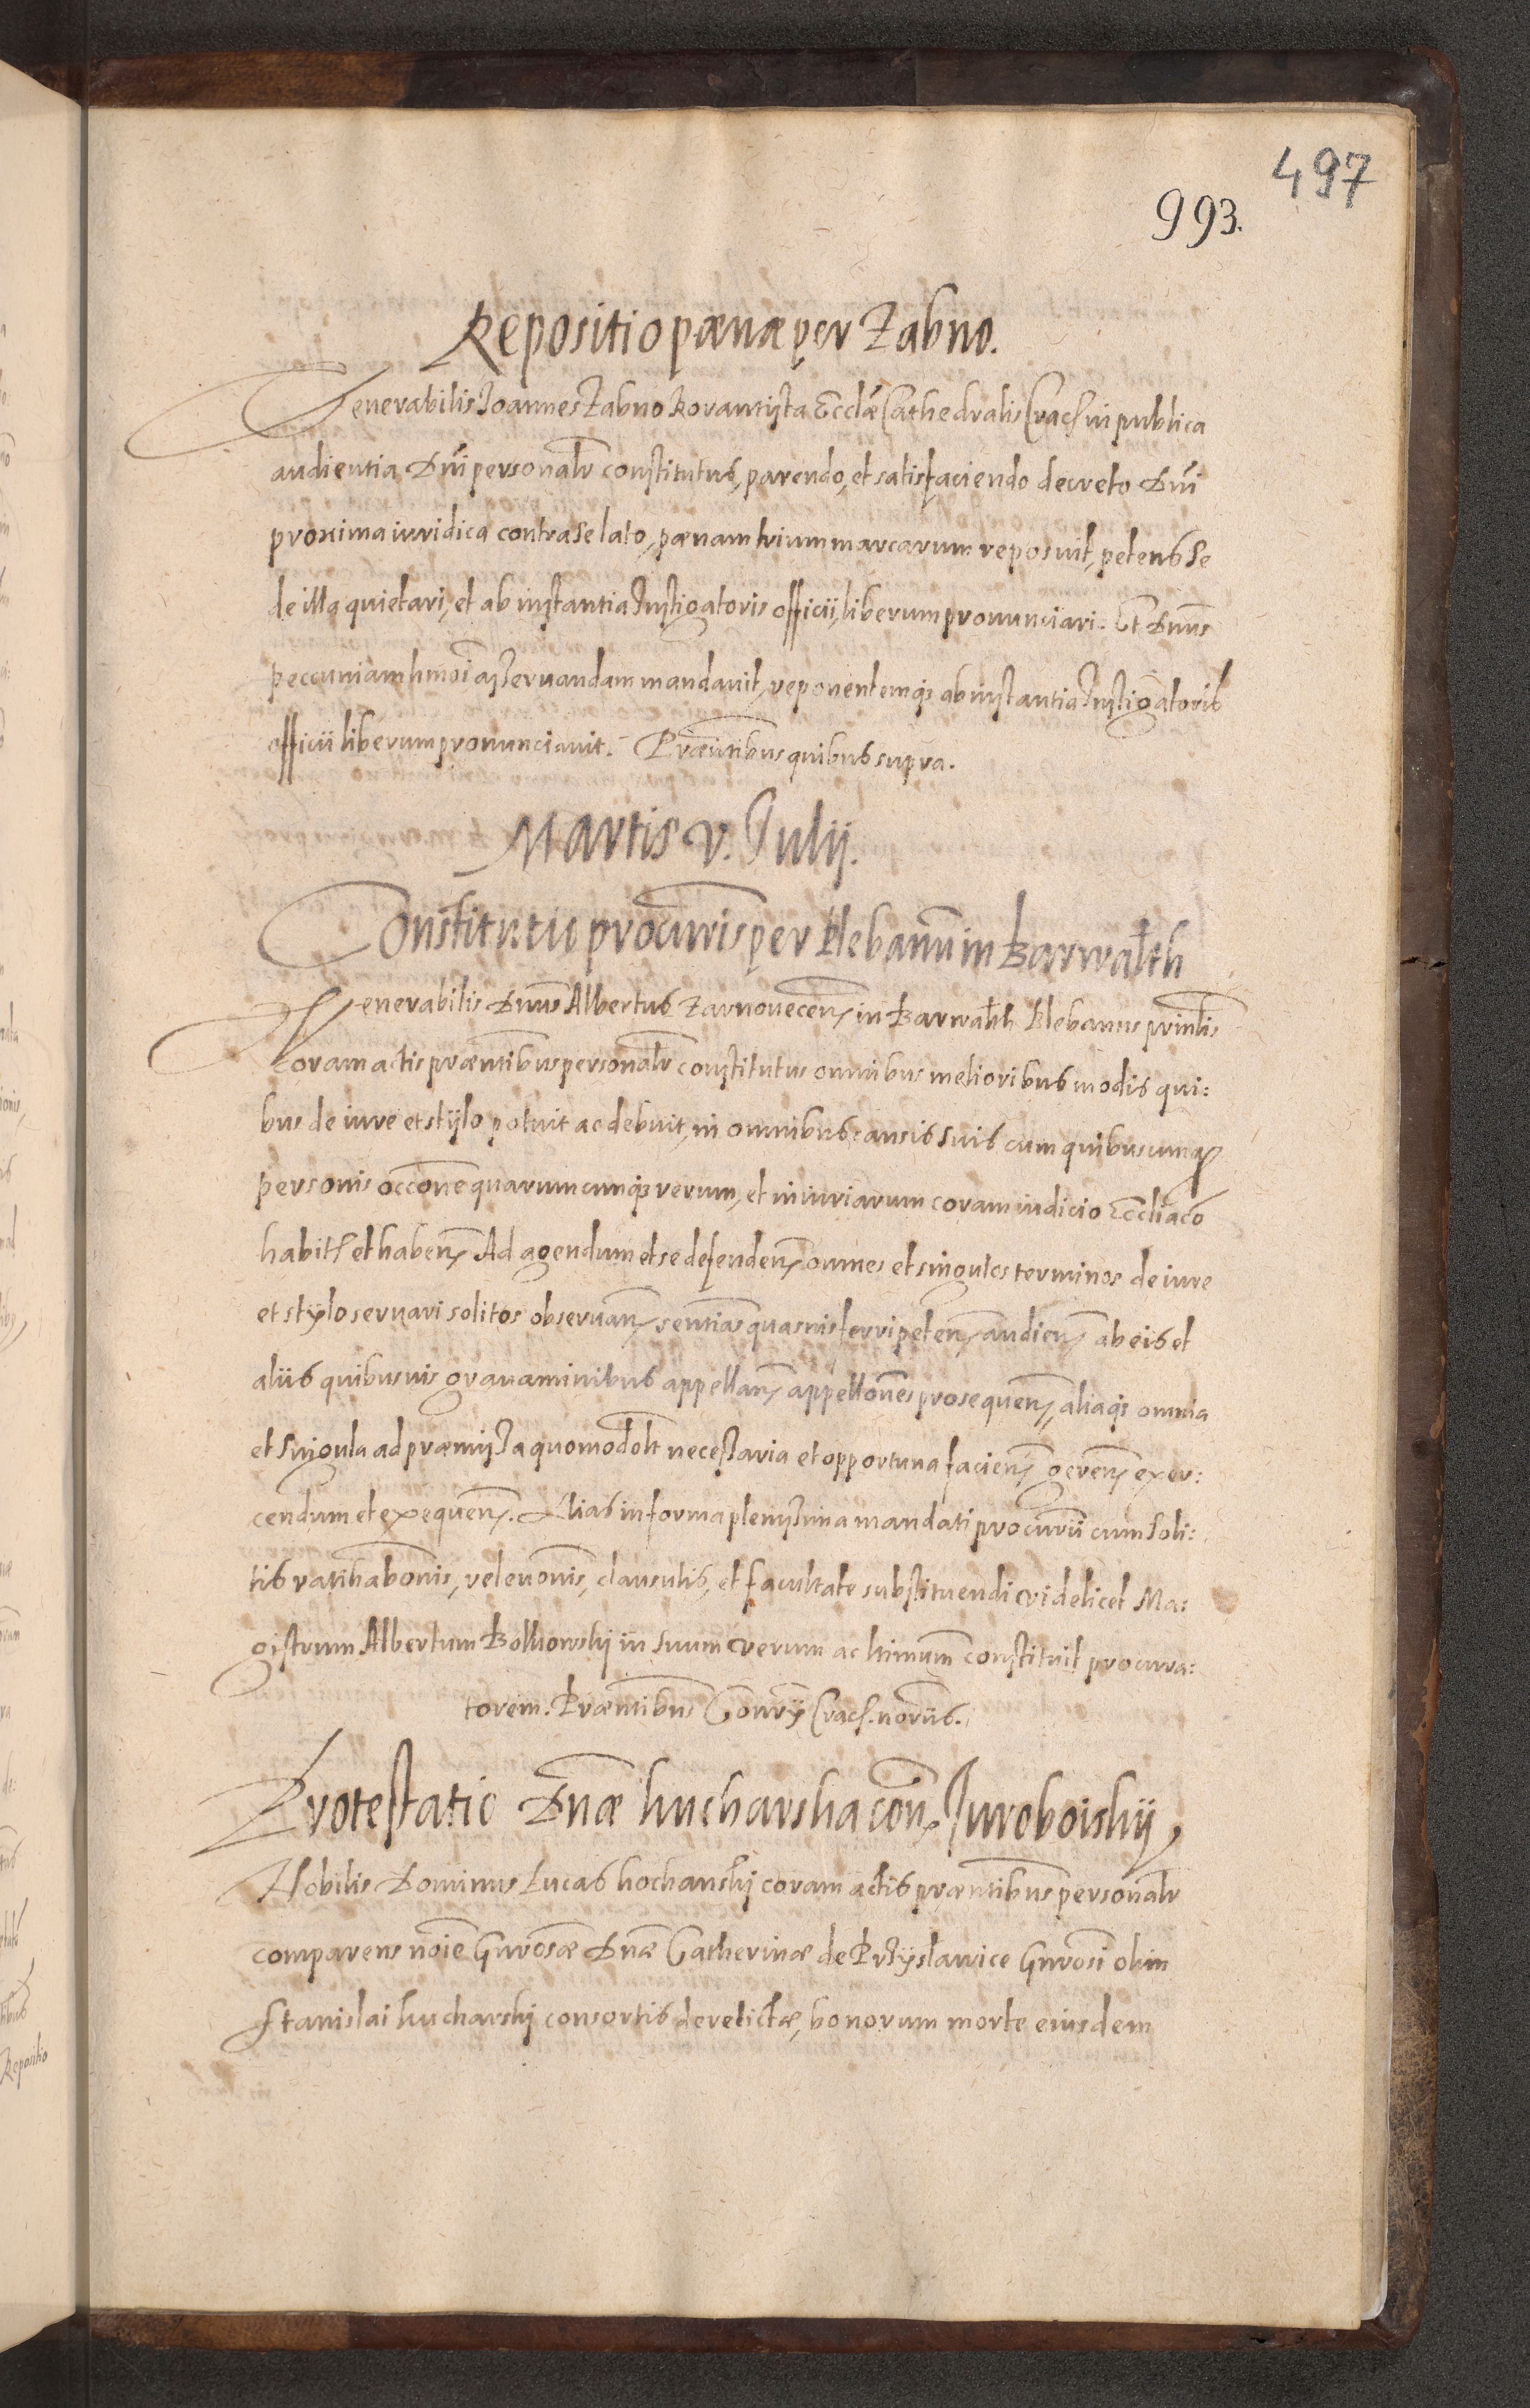 497
993.
Repositio pœnæ per Zabno.
Venerabilis Joannes Zabno Rorantista Ecclæ Cathedralis Crac̄ in publica
audientia Dnī personalr̄ constitutus, parendo, et satisfaciendo decreto Dnī
proxima iuridica contra se lato, pœnam trium marcarum reposuit, petens se
de illa quietari, et ab instantia Instigatoris officii, liberum pronunciari. Et Dnūs
peccuniam hmōi asservandam mandavit, reponentemqȝ ab instantia Instigatoris
officii liberum pronunciavit. Præntībus quibus supra.
Martis v. Julij.
Constitutio procurīs per Plebanū in Barwałth
Venerabilis Dnūs Albertus Zarnovecen̄ in Barwałth Plebanus prinlīs
coram actis præntībus personalr̄ constitutus omnibus melioribus modis qui:
bus de iure et stylo potuit ac debuit, in omnibus causis suis cum quibuscunqȝ
personis occōne quarumcunqȝ rerum, et iniuriarum coram iudicio Eccliācō
habit̄ et haben̄ Ad agendum et se defenden̄ omnes et singulos terminos de iure
et stylo servari solitos observan̄ sentīas quasvis ferri peten̄ audien̄ ab eis et
aliis quibusvis gravaminibus appellan̄ appellōnes prosequen̄, aliaqȝ omnia
et singula ad præmissa quomodolt̄ necessaria et opportuna facien̄ geren̄ exer:
cendum et exequen̄. Alias in forma plenissima mandati procurii cum soli:
tis ratihabōnis, relevōnis, clausulis, et facultate substituendi videlicet Ma:
gistrum Albertum Bolhowski in suum verum ac ltimūm constituit procura:
torem. Præntībus Conrīj Crac̄. norīis.
Protestatio Dnæ Kucharska con̄ Juroboiskij
Nobilis Dominus Lucas Kochański coram actis præntībus personalr̄
comparens noīe Gnrosæ Dnæ Catherinæ de Przysławice Gnrosī olim
Stanislai Kucharski consortis derelictæ, bonorum morte eiusdem